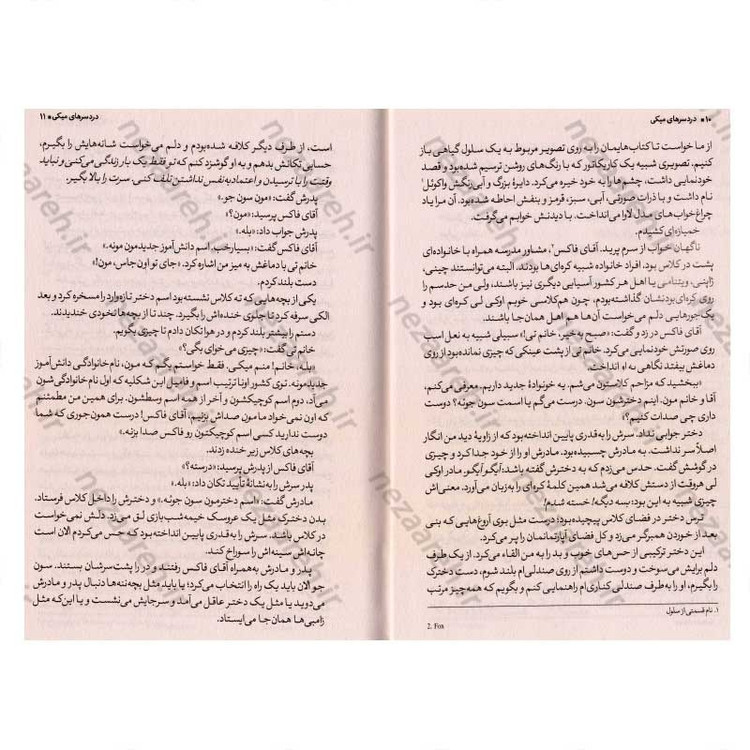 ۱۰ ■ دردسرهای میکی
از ما خواست تا کتاب‌هایمان را به روی تصویر مربوط به یک سلول گیاهی باز
کنیم، تصویری شبیه یک کاریکاتور که با رنگ‌های روشن ترسیم شده‌بود و قصد
خودنمایی داشت، چشم‌ها را به خود خیره می‌کرد. دایرهٔ بزرگ و آبی‌رنگش واکوئل
نام داشت و با ذرات صورتی، آبی، سبز، قرمز و بنفش احاطه شده‌بود. آن مرا یاد
چراغ‌خواب‌های مدل لاوا می‌انداخت. با دیدنش خوابم می‌گرفت.
خمیازه‌ای کشیدم.
ناگهان خواب از سرم پرید. آقای فاکس۲، مشاور مدرسه همراه با خانواده‌ای
پشت در کلاس بود. افراد خانواده شبیه کره‌ای‌ها بودند. البته می‌توانستند چینی،
ژاپنی، ویتنامی یا اهل هر کشور آسیایی دیگری نیز باشند، ولی من حدسم را
روی کره‌ای‌بودنشان گذاشته‌بودم، چون هم‌کلاسی خوبم اوکی لی کره‌ای بود و
یک‌جورهایی دلم می‌خواست آن‌ها هم اهل همان‌جا باشند.
آقای فاکس در زد و گفت: «صبح به‌خیر، خانم تی!» سبیلی شبیه به نعل اسب
روی صورتش خودنمایی می‌کرد. خانم تی از پشت عینکی که چیزی نمانده‌بود از روی
دماغش بیفتد نگاهی به او انداخت.
«ببخشید که مزاحم کلاستون می‌شم. یه خونوادهٔ جدید داریم. معرفی می‌کنم،
آقا و خانم مون. اینم دخترشون سون. درست می‌گم یا اسمت سون جونه؟ دوست
داری چی صدات کنیم؟»
دختر جوابی نداد. سرش را به‌قدری پایین انداخته‌بود که از زاویهٔ دید من انگار
اصلاً سر نداشت. به مادرش چسبیده‌بود. مادرش او را از خود جدا کرد و چیزی
در گوشش گفت. حدس می‌زدم که به دخترش گفته باشد: آیگو آیگو. مادر اوکی
لی هروقت از دستش کلافه می‌شد همین کلمهٔ کره‌ای را به‌زبان می‌آورد. معنی‌اش
چیزی شبیه به این بود: بسه دیگه! خسته شدم!
ترس دختر در فضای کلاس پیچیده‌بود؛ درست مثل بوی آروغ‌هایی که بنی
بعد از خوردن همبرگر می‌زد و کل فضای آپارتمانمان را پر می‌کرد.
این دختر ترکیبی از حس‌های خوب و بد را به من القا می‌کرد. از یک طرف
دلم برایش می‌سوخت و دوست داشتم از روی صندلی‌ام بلند شوم، دست دخترک
را بگیرم، او را به‌طرف صندلی کناری‌ام راهنمایی کنم و بگویم که همه‌چیز مرتب
۱. نام قسمتی از سلول
2. Fox
دردسرهای میکی ■ ۱۱
است، از طرف دیگر کلافه شده‌بودم و دلم می‌خواست شانه‌هایش را بگیرم،
حسابی تکانش بدهم و به او گوشزد کنم که تو فقط یک بار زندگی می‌کنی و نباید
وقتت را با ترسیدن و اعتمادبه‌نفس نداشتن تلف کنی. سرت را بالا بگیر.
پدرش گفت: «مون سون جو.»
آقای فاکس پرسید: «مون؟»
پدرش جواب داد: «بله.»
آقای فاکس گفت: «بسیارخب. اسم دانش‌آموز جدیدمون مونه.»
خانم تی با دماغش به میز من اشاره کرد. «جای تو اون‌جاس، مون!»
دست بلند کردم.
یکی از بچه‌هایی که ته کلاس نشسته بود اسم دختر تازه‌وارد را مسخره کرد و بعد
الکی سرفه کرد تا جلوی خنده‌اش را بگیرد. چند تا از بچه‌ها نخودی خندیدند.
دستم را بیشتر بلند کردم و در هوا تکان دادم تا چیزی بگویم.
خانم تی گفت: «چیزی می‌خوای بگی؟»
«بله، خانم! منم میکی. فقط خواستم بگم که مون، نام‌خانوادگی دانش‌آموز
جدیدمونه. توی کشور اونا ترتیب اسم و فامیل این شکلیه که اول نام‌خانوادگی‌شون
می‌آد، دوم اسم کوچیکشون و آخر از همه اسم وسطشون. برای همین من مطمئنم
که اون نمی‌خواد ما مون صداش بزنیم، آقای فاکس! درست همون‌جوری که شما
دوست ندارید کسی اسم کوچیکتون رو فاکس صدا بزنه.»
بچه‌های کلاس زیر خنده زدند.
آقای فاکس از پدرش پرسید: «درسته؟»
پدر سرش را به‌نشانهٔ تأیید تکان داد: «بله.»
مادرش گفت: «اسم دخترمون سون جوئه.» و دخترش را داخل کلاس فرستاد.
بدن دخترک مثل یک عروسک خیمه‌شب‌بازی لق می‌زد. دلش نمی‌خواست
در کلاس باشد. سرش را به‌قدری پایین انداخته‌بود که حس می‌کردم الان است
چانه‌اش سینه‌اش را سوراخ کند.
پدر و مادرش به‌همراه آقای فاکس رفتند و در را پشت‌سرشان بستند. سون
جو الان باید یک راه را انتخاب می‌کرد؛ یا باید مثل بچه‌ننه‌ها دنبال پدر و مادرش
می‌دوید یا مثل یک دختر عاقل می‌آمد و سرجایش می‌نشست و یا این‌که مثل
زامبی‌ها همان‌جا می‌ایستاد.
nezaareh.ir